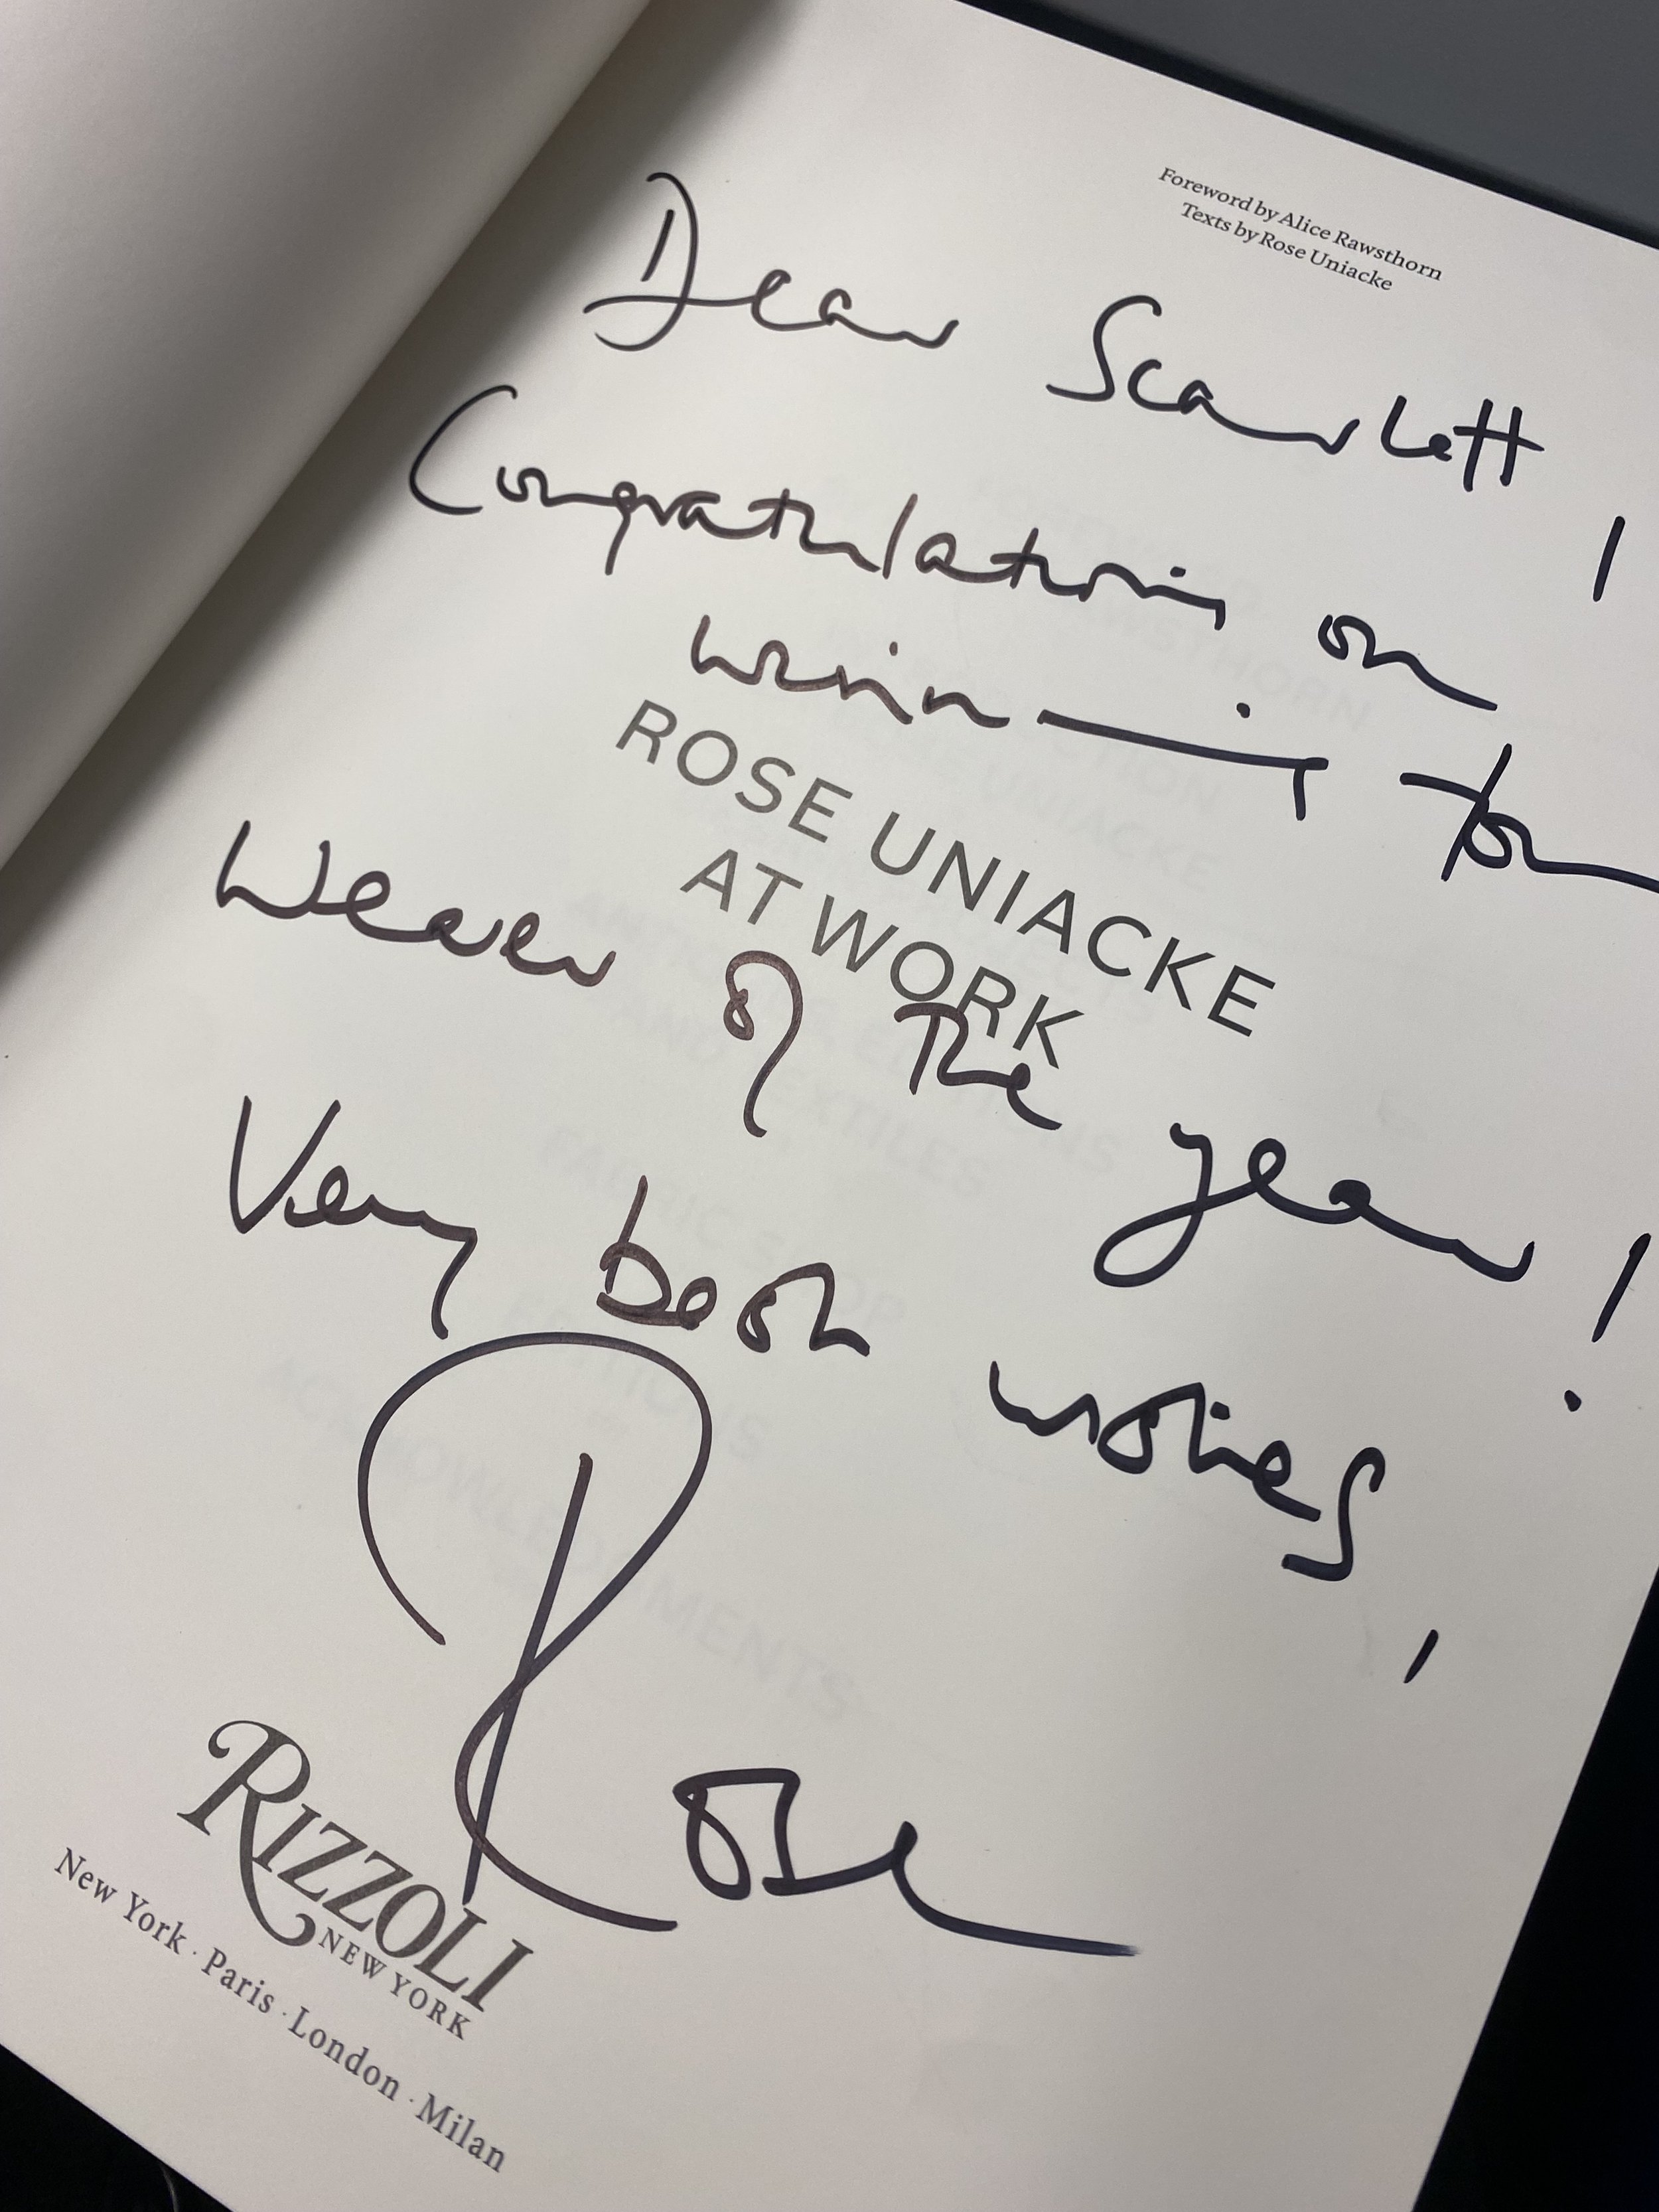 Foreword by Alice Rawsthorn
Texts by Rose Uniacke
Dear Scarlett,
Congratulations on
winning
ROSE UNIACKE
AT WORK
Weaver of The year!
Very best wishes,
Rose
RIZZOLI
NEW YORK
New York · Paris · London · Milan